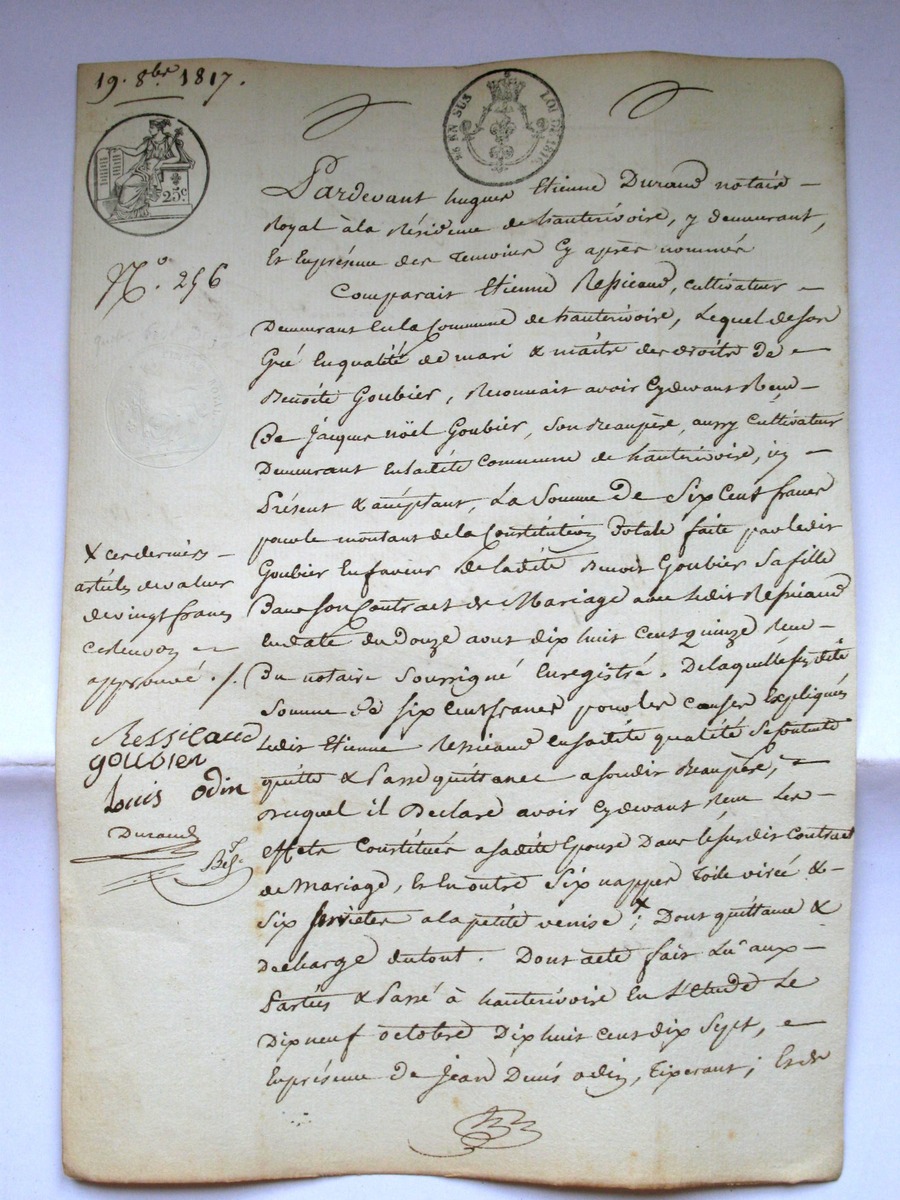 19. 8bre 1817.
EN SUS LOI DE 1816
25c
No. 256
Pardevant hugues Etienne Durand notaire
Royal à la Résidence de hauterivoire, y demeurant,
Et Enprésence des Temoins Cy après nommés
Comparait Etienne Ressicaud, cultivateur
Demeurant En la Commune de hauterivoire, Lequel de son
Gré Enqualité de mari & maitre des droits de
Benoite Goubier, Reconnait avoir Cydevant Reçu
De Jacques nöel Goubier, son Beaupère, aussy Cultivateur
Demeurant En ladite Commune de hauterivoire, icy
Présent & acceptant, La Somme De Six Cent francs
pour le montant de la Constitution Dotale faite par ledit
Goubier En faveur de ladite Benoite Goubier Sa fille
Dans son Contract de Mariage avec ledit Ressicaud
En date du Douze aout dix huit Cent quinze Reçu
Du notaire Soussigné Enregistré. De laquelle susdite
Somme de six Cent francs pour les causes Expliquées
Ledit Etienne Ressicaud En sadite qualité Se contente
quitte & Passe quittance a sondit Beaupère,
duquel il Declare avoir Cydevant Reçu Les
effets Constitués a sadite Epouse Dans le susdit Contract
de Mariage, Et En outre Six nappes Toile virée &
Six serviettes a la petite venise x; Dont quittance &
Decharge du tout. Dont acte fait Lu aux
Parties & Passé à hauterivoire En L'étude Le
Dix neuf octobre Dix huit cent dix Sept,
Enprésence de Jean Denis odin, Tixerant; Et de
x ces derniers
articles de valeur
de vingt francs
ce renvoy
approuvé ./.
Ressicaud
goubier
Louis odin
Durand